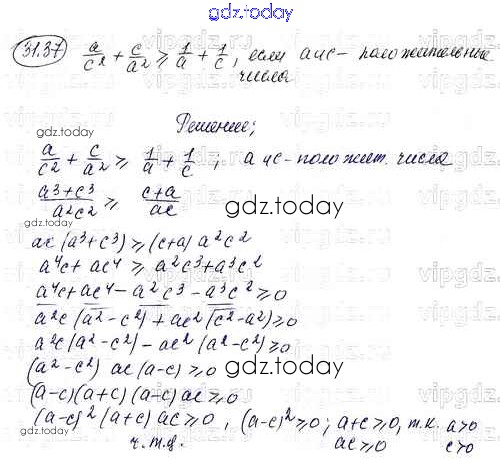 gdz.today
31.37 a/c² + c/a² ≥ 1/a + 1/c, если а и с – положительные
числа
Решение;
gdz.today
a/c² + c/a² ≥ 1/a + 1/c ; а и с – положит. числа
(a³+c³)/(a²c²) ≥ (c+a)/(ac)
gdz.today
ac(a³+c³) ≥ (c+a) a²c²
a⁴c + ac⁴ ≥ a²c³ + a³c²
a⁴c + ac⁴ – a²c³ – a³c² ≥ 0
a²c(a²–c²) + ac²(c²–a²) ≥ 0
a²c(a²–c²) – ac²(a²–c²) ≥ 0
(a²–c²) ac(a–c) ≥ 0
gdz.today
(a–c)(a+c)(a–c) ac ≥ 0
(a–c)²(a+c) ac ≥ 0, (a–c)² ≥ 0; a+c ≥ 0, т.к. a>0
ч.т.д. ac ≥ 0 c>0
gdz.today
vipgdz